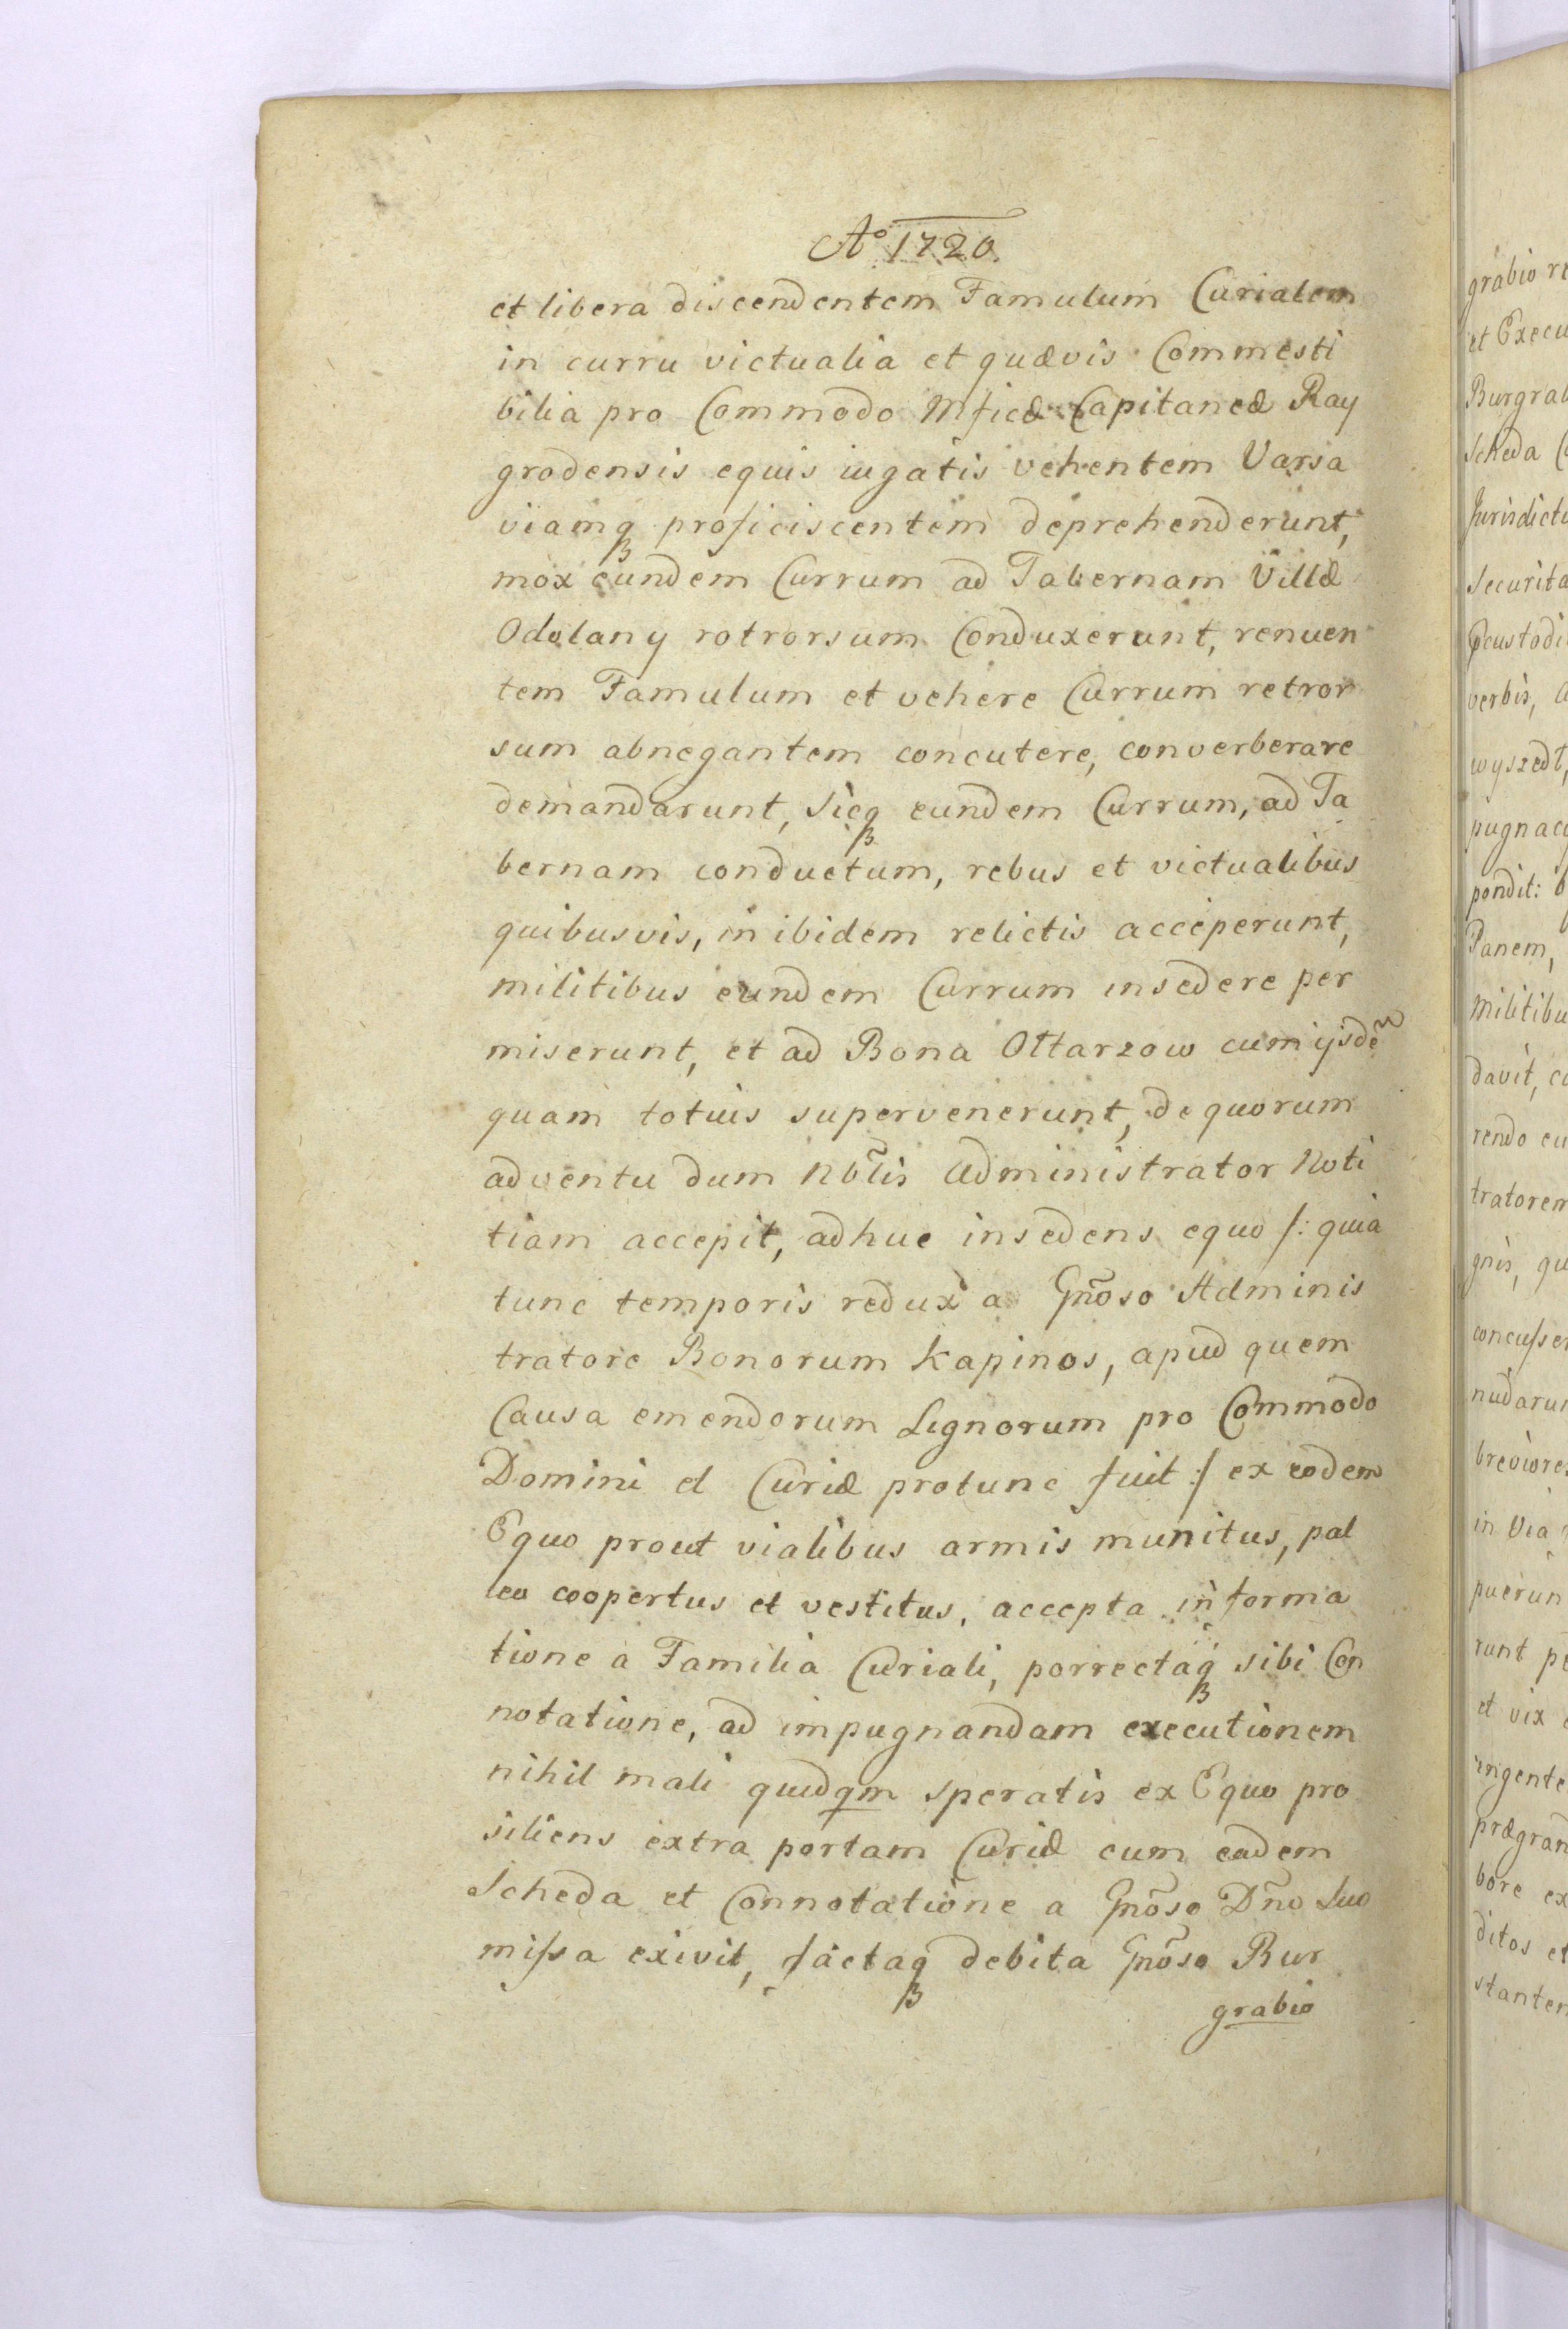 Aº 1720
et libera discendentem Famulum Curialem
in curru victualia et quævis Commesti
bilia pro Commodo Mficæ Capitaneæ Ray
grodensis equis iugatis vehentem Varsa
viamq3 proficiscentem deprehenderunt,
mox eundem Currum ad Tabernam Villæ
Odolany rotrorsum Conduxerunt, renuen
tem Famulum et vehere Currum retror
sum abnegantem concutere, converberare
demandarunt, Sicq3 eundem Currum, ad Ta
bernam conductum, rebus et victualibus
quibusvis, in ibidem relictis acceperunt,
militibus eundem Currum insedere per
miserunt, et ad Bona Ottarzow cum ijsdẽ
quam totuis supervenerunt, de quorum
adventu dum Nob̃lis Administrator Noti
tiam accepit, adhuc insedens equo /: quia
tunc temporis redux a Gñoso Adminis
tratore Bonorum Kapinos, apud quem
Causa emendorum Lignorum pro Commodo
Domini et Curiæ protunc fuit :/ ex eodem
Equo prout vialibus armis munitus, pal
leo coopertus et vestitus, accepta informa
tione a Familia Curiali, porrectaq3 sibi Con
notatione, ad impugnandam executionem
nihil mali quidqm speratis ex Equo pro
siliens extra portam Curiæ cum eadem
Scheda et Connotatione a Gñoso Dño Suo
missa exivit, factaq3 debita Gñoso Bur
grabio
grabio
et Execu
Burgrab
Scheda
Jurisdicti
Securita
verbis,
wyszedł,
pugnacq
pondit:
Panem,
Militibu
davit,
rendo
tratorem
gnis,
concusser
nudarun
breviores
in Via
puerun
runt
et vix
ingente
prægrand
bore ex
ditos et
stantem